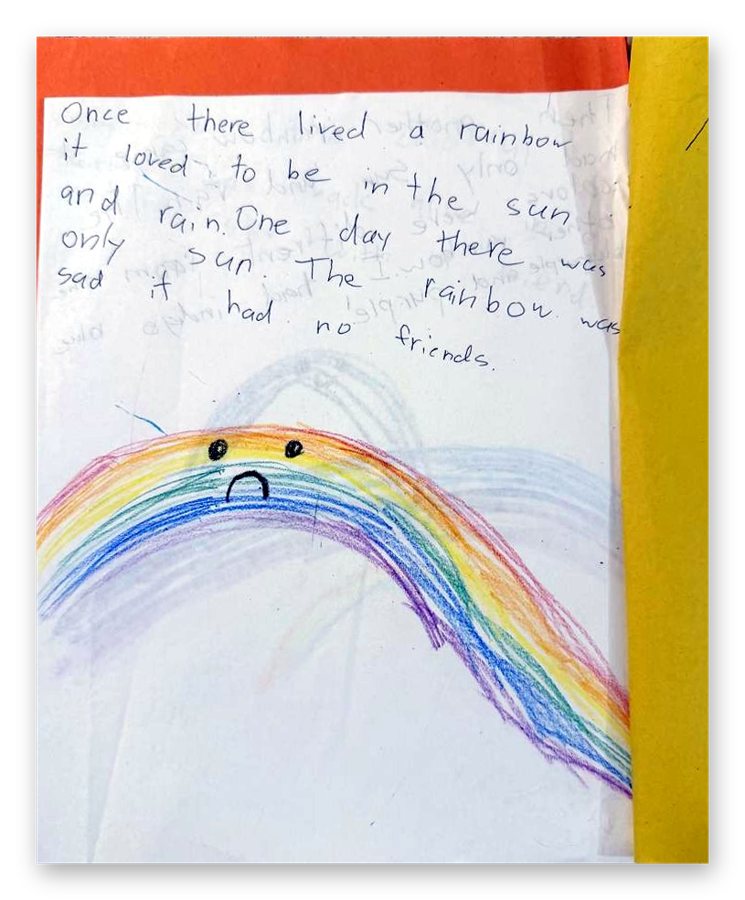 Once there lived a rainbow
it loved to be in the sun
and rain. One day there was
only sun. The rainbow was
sad it had no friends.